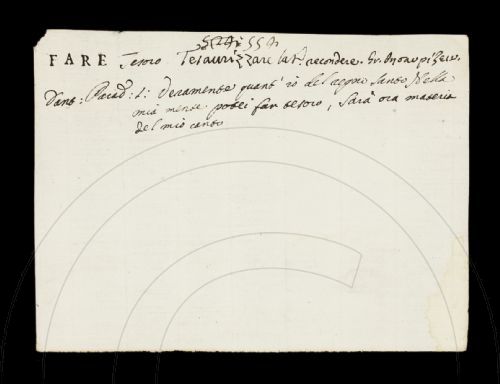 FARE Tesoro Tesaurizzare lat. recondere.
Dant: Parad: 1: Veramente quant' io del regno santo Nella
mia mente potei far tesoro, Sarà ora materia
del mio canto